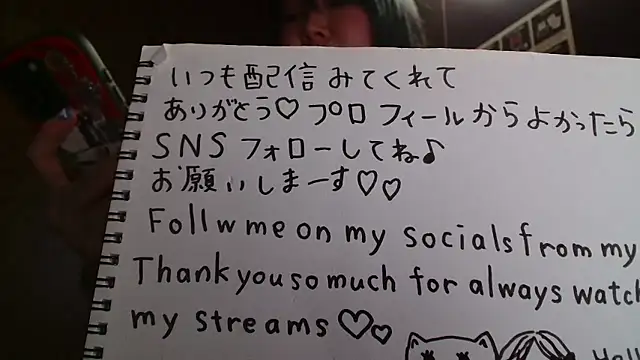 いつも配信みてくれて
ありがとう♡プロフィールからよかったら
SNSフォローしてね♪
お願いしまーす♡♡
Follw me on my socials from my
Thank you so much for always watch
my streams♡♡